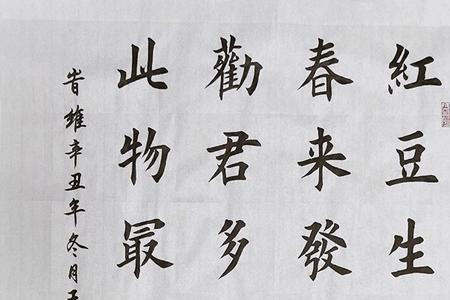 紅豆生
春来發
勸君多
此物最
旹維辛丑年冬月